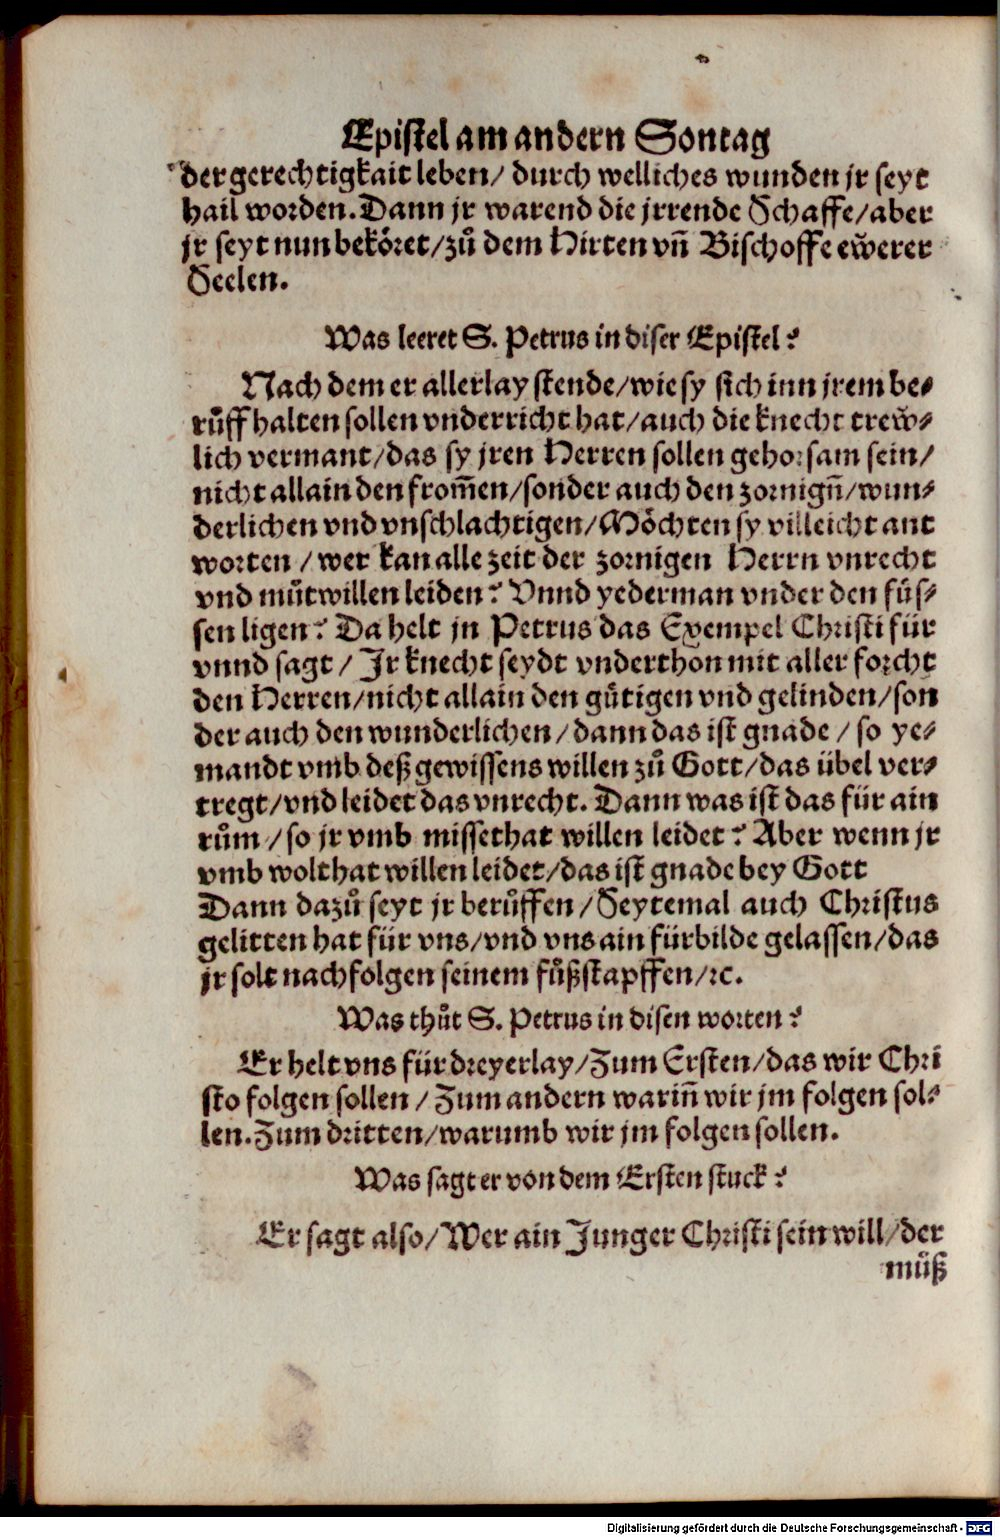 Epistel am andern Sontag
der gerechtigkait leben/ durch welliches wunden jr seyt
hail worden. Dann jr warend die jrrende Schaffe/aber
jr seyt nun bekoͤret/zuͦ dem Hirten vñ Bischoffe ew̆erer
Seelen.
Was leeret S. Petrus in diser Epistel?
Nach dem er allerlay stende/wie sy sich inn jrem be-
ruͤff halten sollen vnderricht hat/auch die knecht trew̆-
lich vermant/das sy jren Herren sollen gehorsam sein/
nicht allain den from̃en/sonder auch den zornigñ/wun-
derlichen vnd vnschlachtigen/Moͤchten sy villeicht ant
worten / wer kan alle zeit der zornigen Herrn vnrecht
vnd muͦtwillen leiden? Vnnd yederman vnder den füs-
sen ligen? Da helt jn Petrus das Exempel Christi für
vnnd sagt / Ir knecht seydt vnderthon mit aller forcht
den Herren/nicht allain den guͤtigen vnd gelinden/son
der auch den wunderlichen/dann das ist gnade / so ye-
mandt vmb deß gewissens willen zuͦ Gott/das übel ver-
tregt/vnd leidet das vnrecht. Dann was ist das für ain
ruͦm /so jr vmb missethat willen leidet? Aber wenn jr
vmb wolthat willen leidet/das ist gnade bey Gott
Dann dazuͦ seyt jr beruͦffen/Seytemal auch Christus
gelitten hat für vns/vnd vns ain fürbilde gelassen/das
jr solt nachfolgen seinem fuͦßstapffen/ꝛc.
Was thuͦt S. Petrus in disen worten?
Er helt vns für dreyerlay/Zum Ersten/das wir Chri
sto folgen sollen / Zum andern warinñ wir jm folgen sol-
len. Zum dritten/warumb wir jm folgen sollen.
Was sagt er von dem Ersten stuck?
Er sagt also/Wer ain Junger Christi sein will/der
muͦß
Digitalisierung gefördert durch die Deutsche Forschungsgemeinschaft - DFG